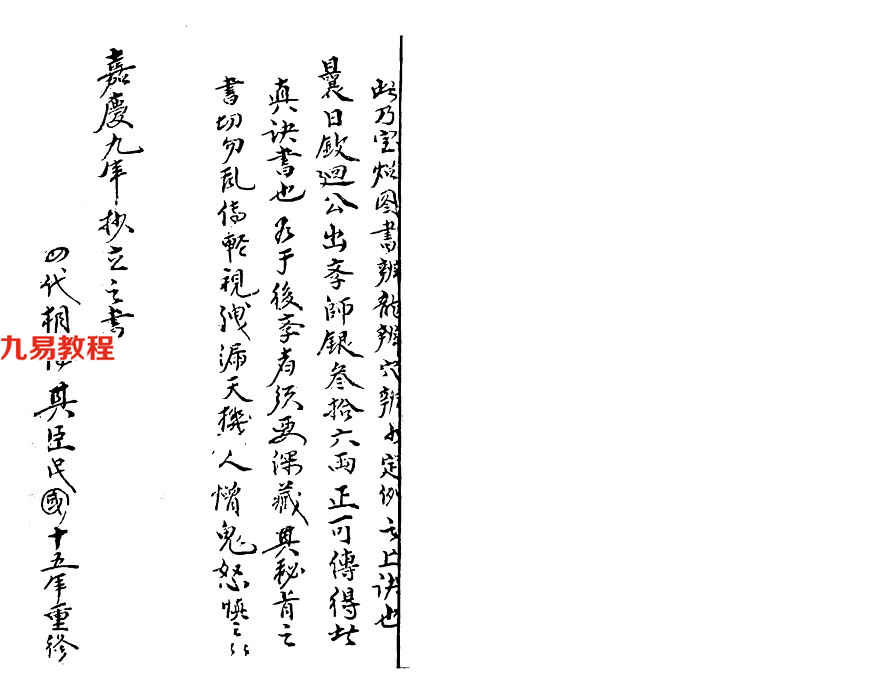 此乃宝照图書辨龍辨穴辨水定例之上訣也
曩日欽迴公出李師銀叁拾六両正可傳得此
真訣書也 至于後李者須要深藏其秘肯之
書切勿乱傳軽視洩漏天機人憎鬼怒慎之〻
嘉慶九年抄立之書
四代相 其臣民國十五年重修
九易教程